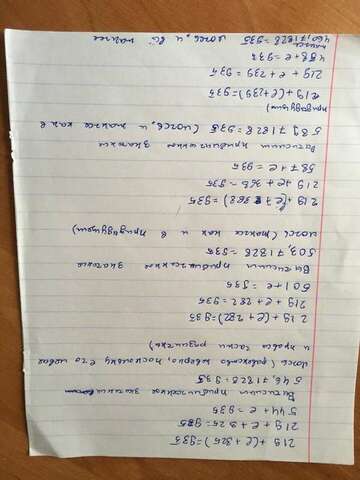 219 + (e + 325) = 935
219 + e + 325 = 935
544 + e = 935
Вычислим приближенное значение
546,71828 = 935
ложь (равенство неверно, поскольку его левая
и правая части различны)
219 + (e + 282) = 935
219 + e + 282 = 935
501 + e = 935
Вычислим приближенное значение
503,71828 = 935
ложь (также как и в предыдущем)
219 + (e + 368) = 935
219 + e + 368 = 935
587 + e = 935
Вычислим приближенное значение
589,71828 = 935 (ложь, и также как в
предыдущем)
219 + (e + 239) = 935
219 + e + 239 = 935
458 + e = 935
460,71828 = 935 ложь, и всё